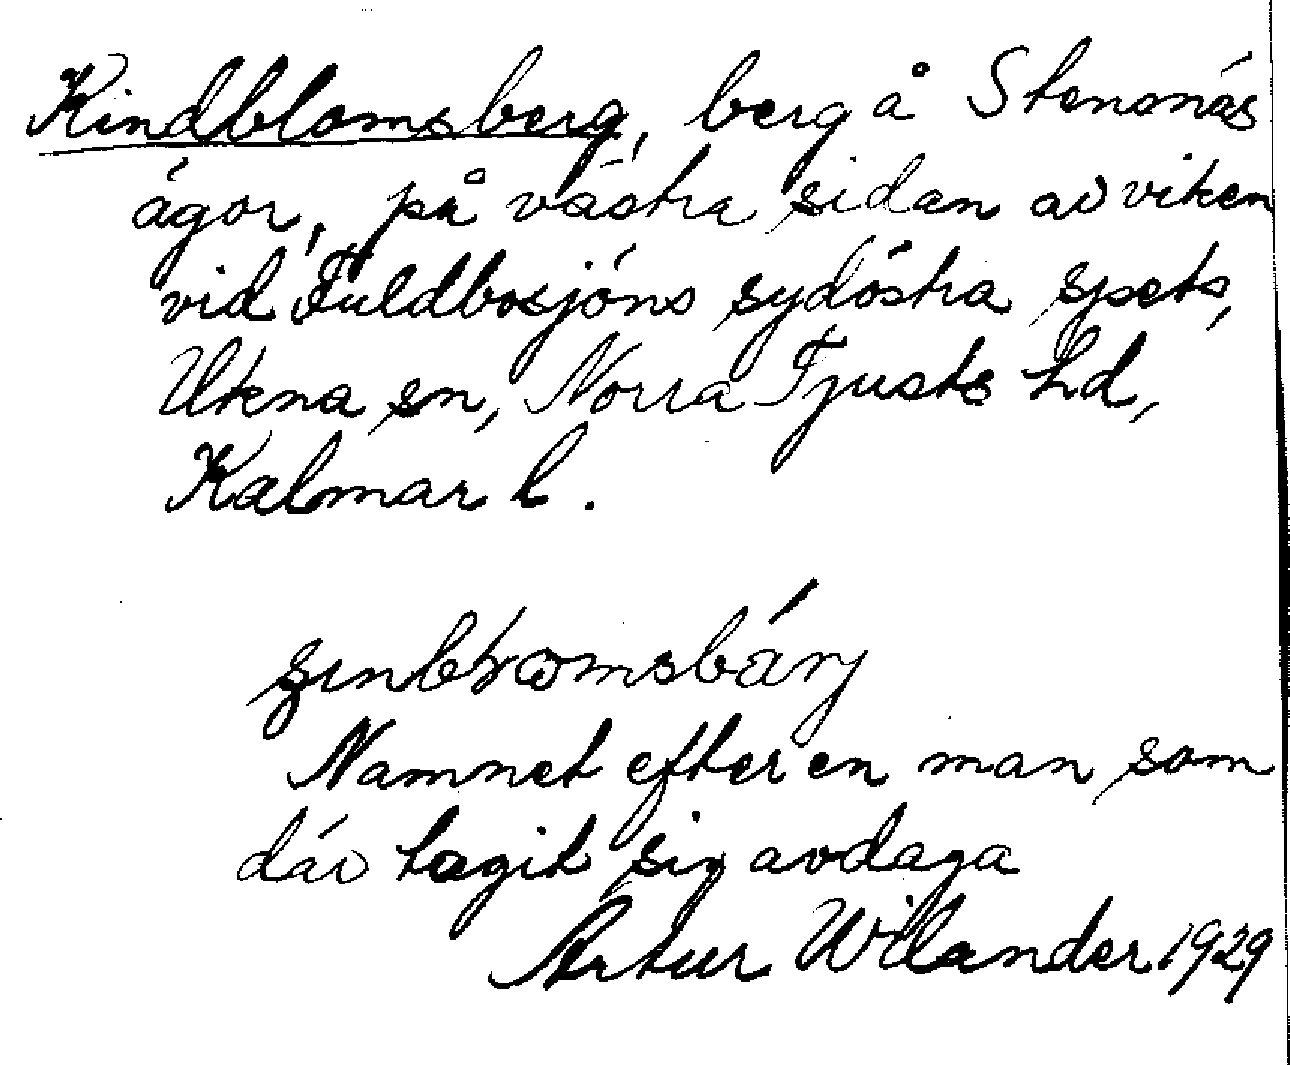 Kindblomsberg, berg å Stensnäs
ägor, på västra sidan av viken
vid Fuldbosjöns sydöstra spets,
Ukna sn, Norra Tjusts hd,
Kalmar l.
Namnet efter en man som
där tagit sig avdaga
Artur Wilander 1929